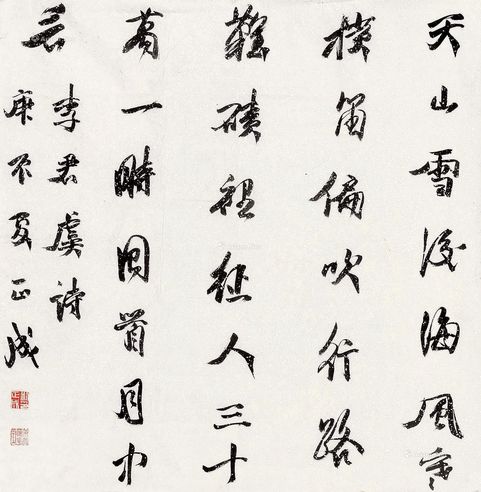 天山雪後海風寒
橫笛偏吹行路
難磧裡征人三十
萬一時回首月中
看
李君虞詩
庚夏正成